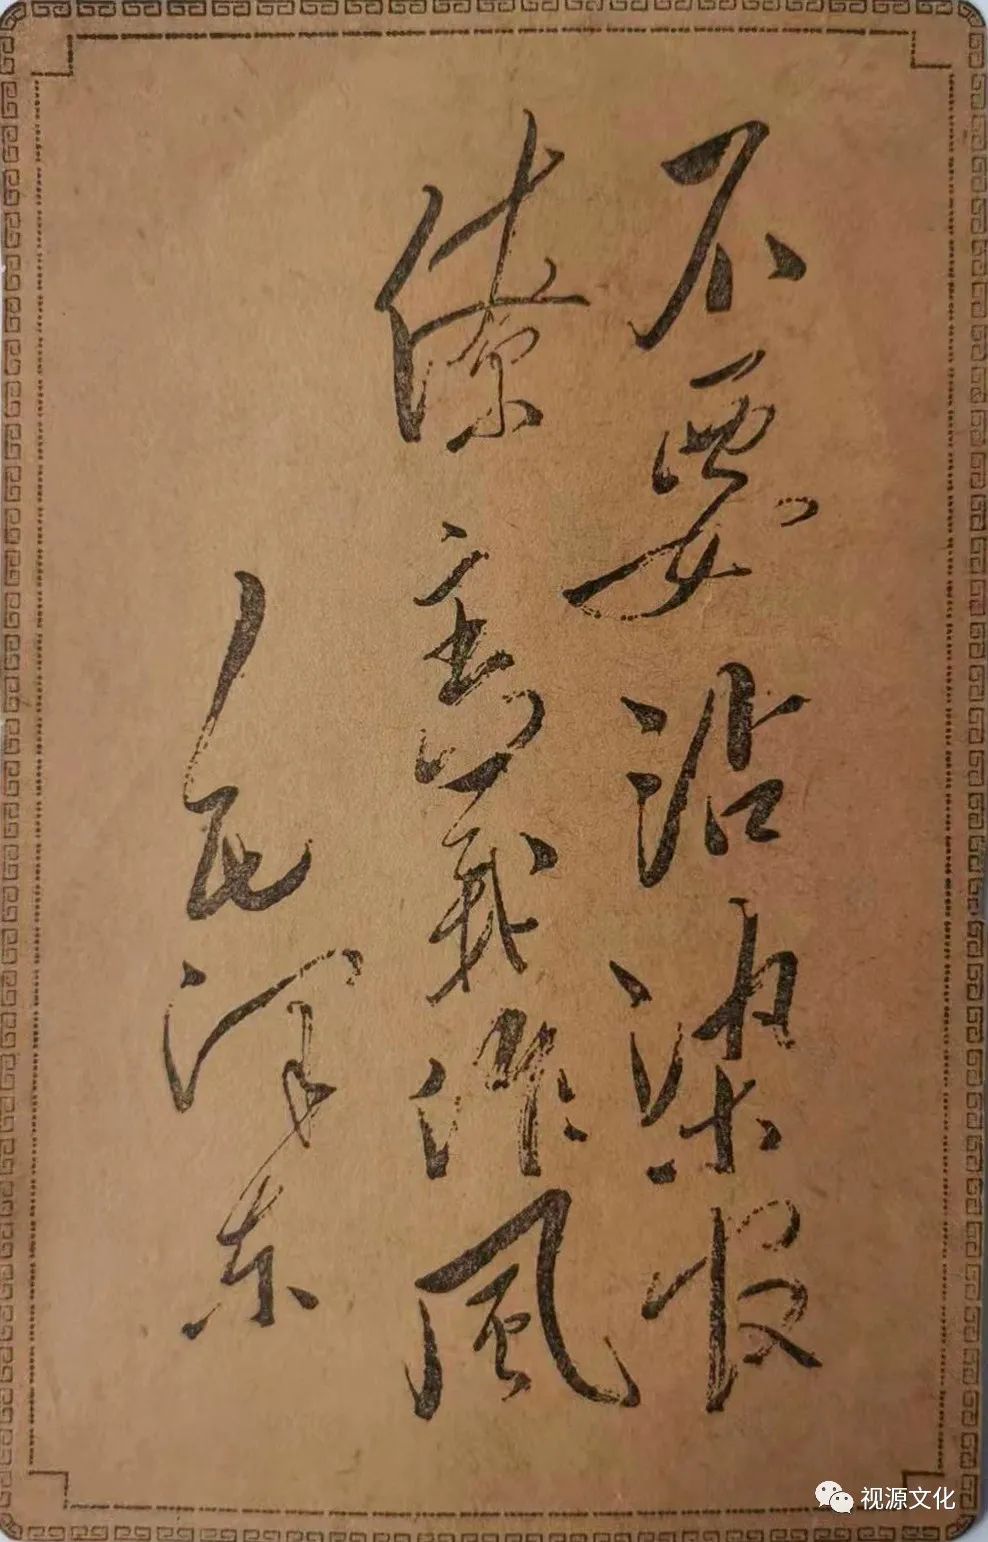 不要沾染官
僚主義作風
毛泽东
视源文化